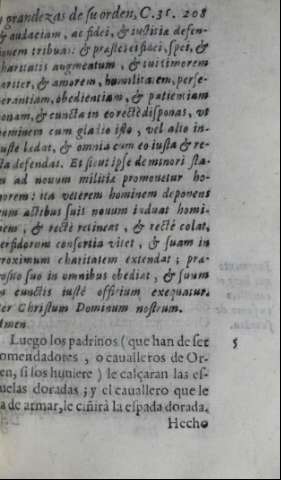 y grandezas de su orden, C. 31. 208
& audaciam, ac fidei, & iustitiæ defen-
ionem tribuas: & præstes ei fidei, spei, &
haritatis augmentum, & tui timorem
ariter, & amorem, humilitatem, perse-
erantiam, obedientiam, & patientiam
onam, & cuncta in eo rectè disponas, vt
eminem cum gladio isto, vel alio in-
iustè ledat, & omnia cum eo iusta & re-
ta defendat. Et sicut ipse de minori sta-
u ad nouum militiæ promouetur ho-
norem: ita veterem hominem deponens
um actibus suis nouum induat homi-
nem, & rectè retineat, & rectè colat,
perfidorum consortia vitet, & suam in
roximum charitatem extendat; præ-
osito suo in omnibus obediat, & suum
n cunctis iustè officium exequatur.
er Christum Dominum nostrum.
Amen.
Luego los padrinos (que han de ser 5
omendadores, o caualleros de Or-
en, si los huuiere) le calçaran las es-
uelas doradas; y el cauallero que le
a de armar, le ciñirà la espada dorada.
Hecho